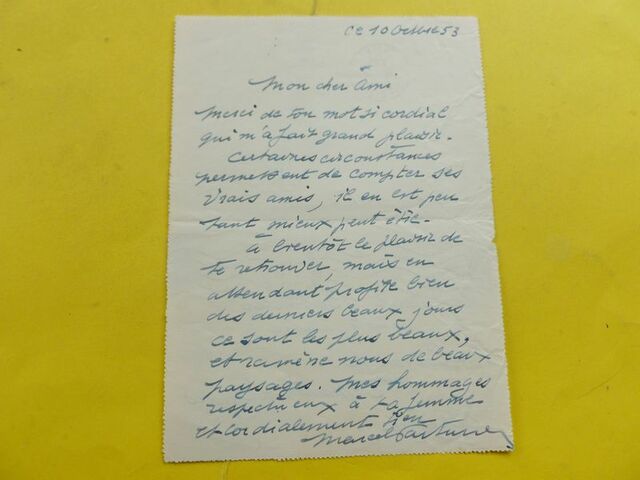 ce 10 Octbre 53
Mon cher Ami
Merci de ton mot si cordial
qui m'a fait grand plaisir.
Certaines circonstances
permettent de compter ses
vrais amis, il en est peu
tant mieux peut être.
à bientôt le plaisir de
te retrouver, mais en
attendant profite bien
des derniers beaux jours
ce sont les plus beaux,
et ramène nous de beaux
paysages. Mes hommages
respectueux à ta femme
et cordialement tien
Marcel